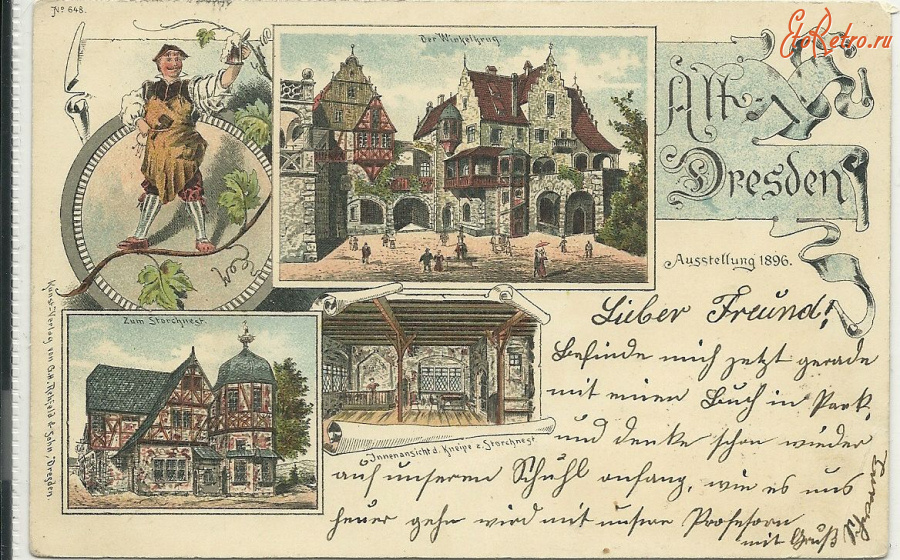 No 648.
EtoRetro.ru
Der Winkelkrug
Alt-
Dresden
Ausstellung 1896.
Zum Storchnest.
Innenansicht d. Kneipe z. Storchnest
Kunst-Verlag von G.H. Rehfeld & Sohn, Dresden
Lieber Freund!
Befinde mich jetzt gerade
mit einen Buch in Park,
und denke schon wieder
auf unseren Schuhl anfang, wie es uns
heuer gehn wird mit unsere Profesorn
mit Gruß